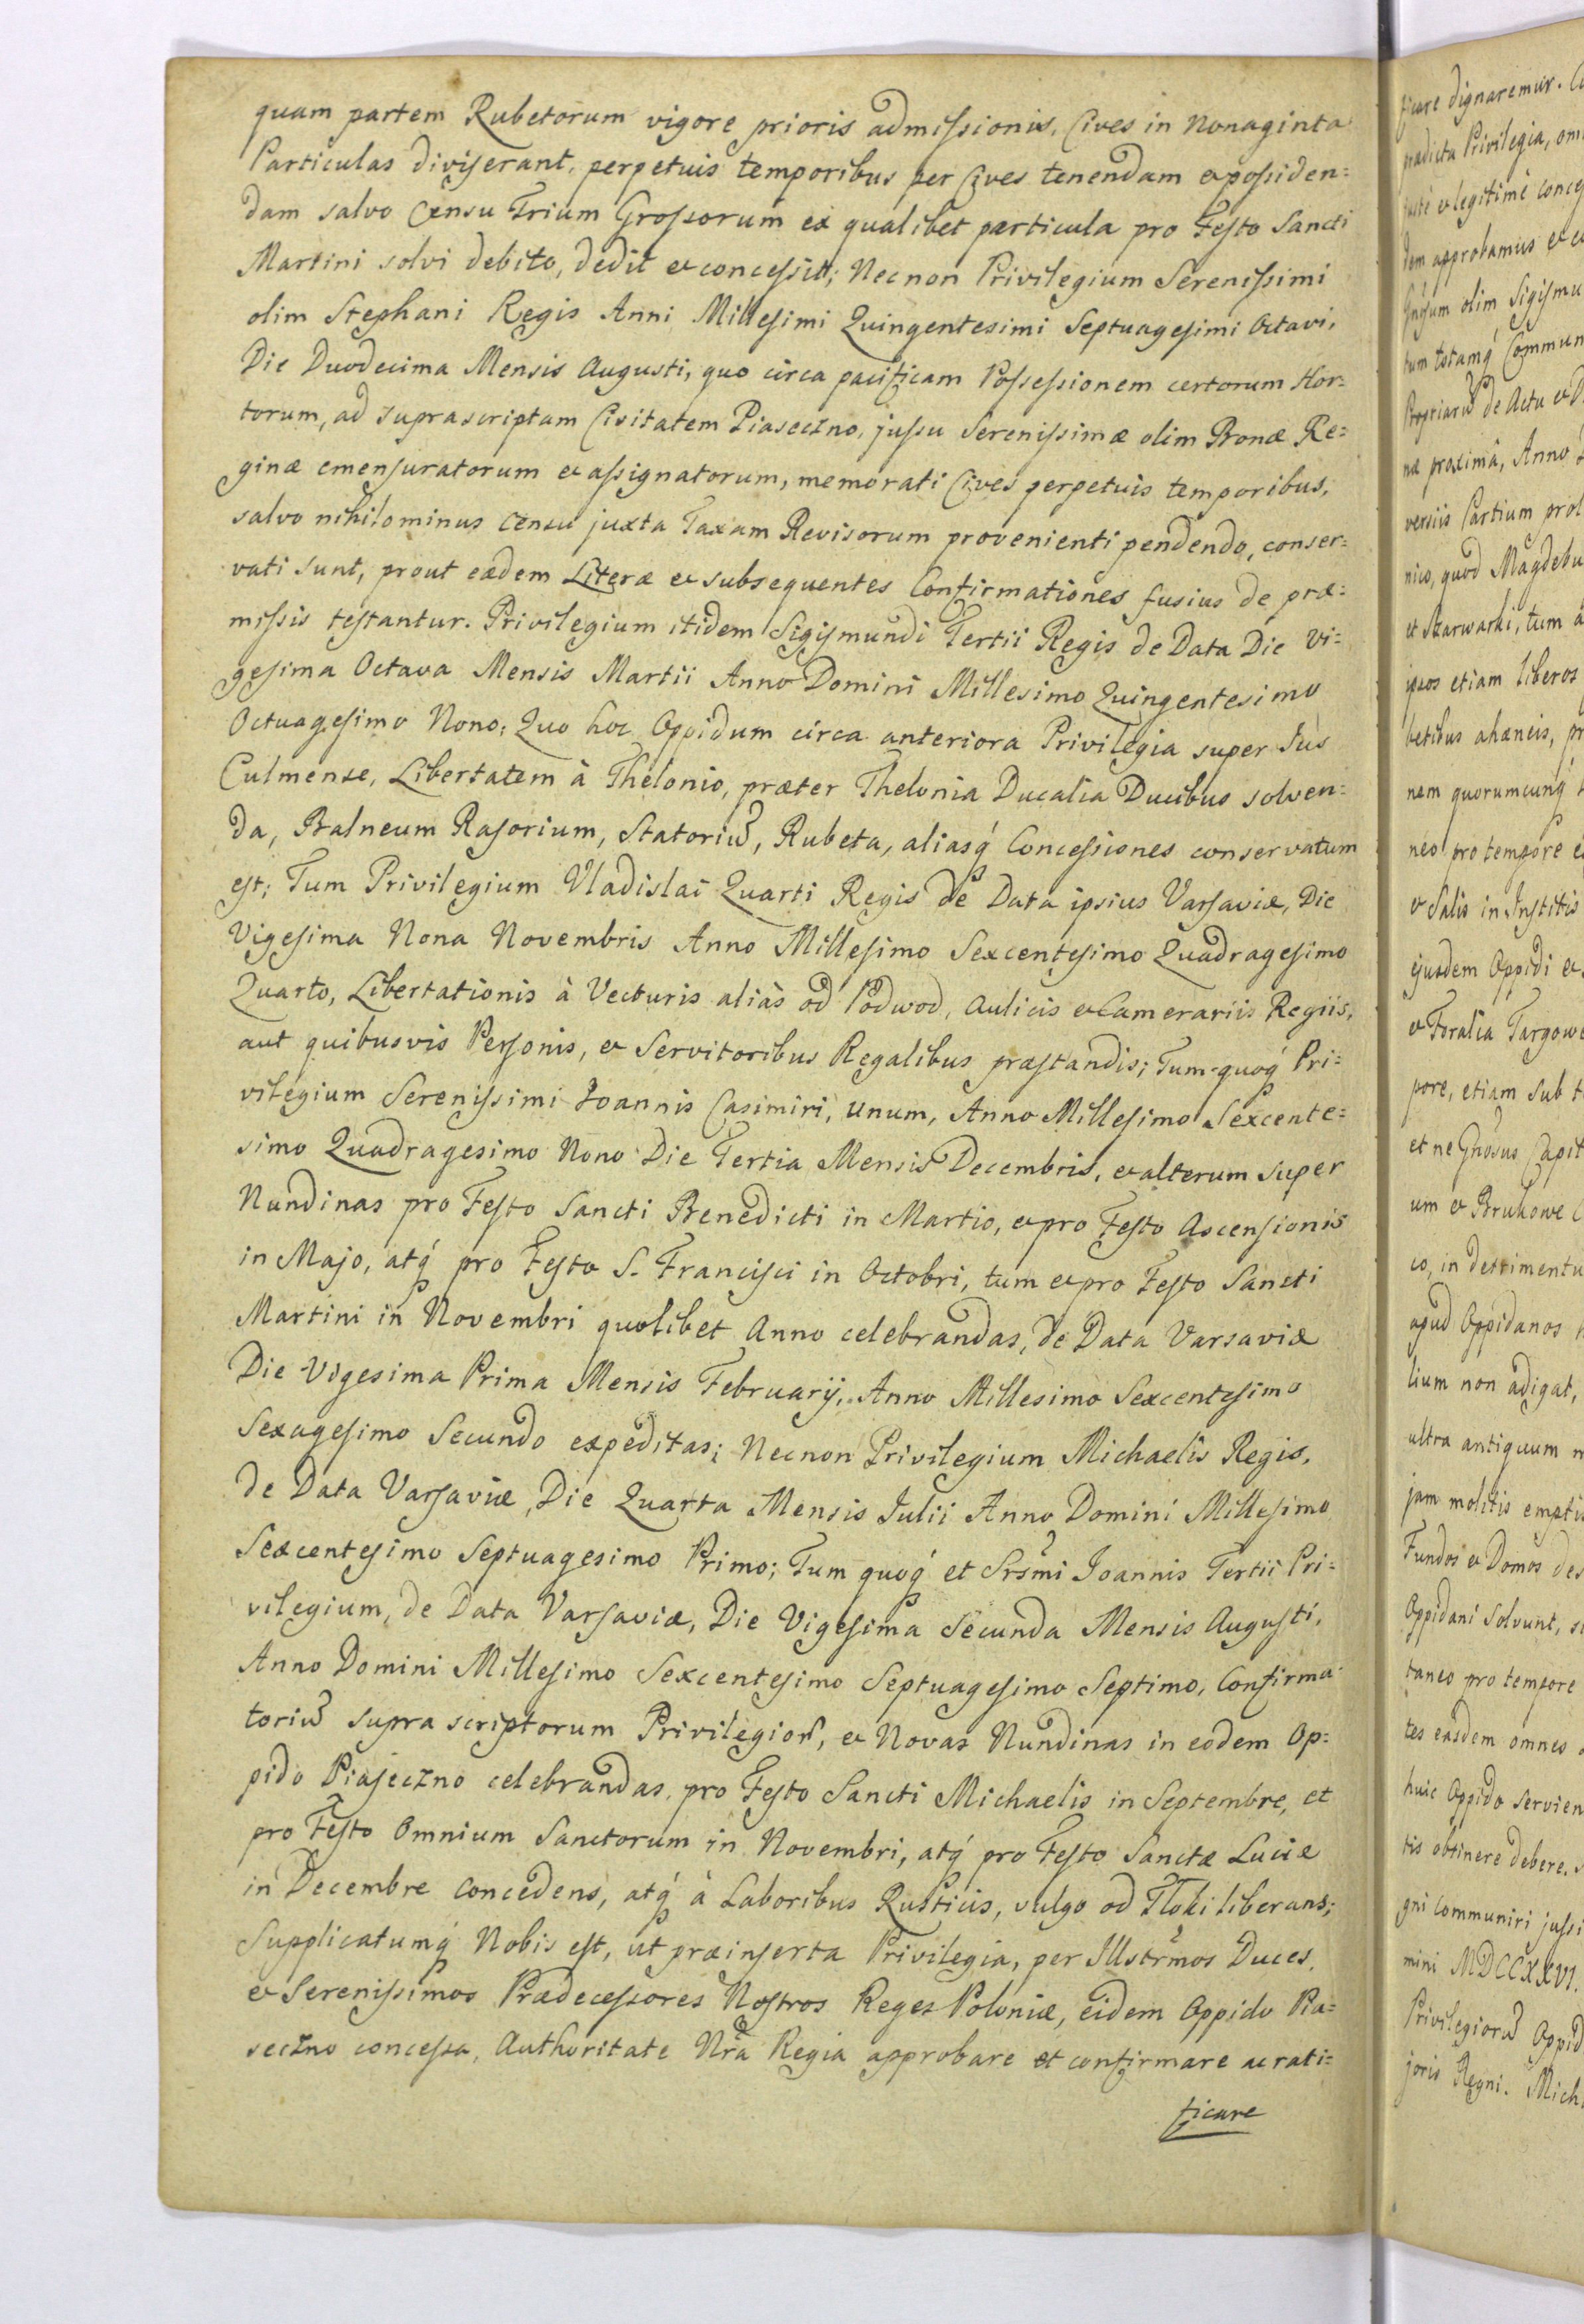 quam partem Rubetorum vigore prioris admissionis, Cives in Nonaginta
Particulas diviserant, perpetuis temporibus per Cives tenendam et possiden=
dam salvo Censu Trium Grossorum ex qualibet particula pro Festo Sancti
Martini solvi debito, dedit et concessit; Necnon Privilegium Serenissimi
olim Stephani Regis Anni Millesimi Quingentesimi Septuagesimi Octavi,
Die Duodecima Mensis Augusti, quo circa pacificam Possessionem certorum Hor=
torum, ad suprascriptam Civitatem Piaseczno, jussu Serenissimæ olim Bonæ Re=
ginæ emensuratorum et assignatorum, memorati Cives perpetuis temporibus,
salvo nihilominus censu juxta Taxam Revisorum provenienti pendendo, conser=
vati sunt, prout eædem Literæ et subsequentes Confirmationes fusius de præ=
missis testantur. Privilegium itidem Sigismundi Tertii Regis de Data Die Vi=
gesima Octava Mensis Martii Anno Domini Millesimo Quingentesimo
Octuagesimo Nono, Quo hoc Oppidum circa anteriora Privilegia super Jus
Culmense, Libertatem à Thelonio, præter Thelonia Ducalia Ducibus solven=
da, Balneum Rasorium, Statoriũ, Rubeta, aliasq́ Concessiones conservatum
est; Tum Privilegium Vladislai Quarti Regis de Data ipsius Varsaviæ, Die
Vigesima Nona Novembris Anno Millesimo Sexcentesimo Quadragesimo
Quarto, Libertationis à Vecturis aliàs od Podwod, Aulicis et Camerariis Regiis,
aut quibusvis Personis, et Servitoribus Regalibus præstandis; Tum quoq́ Pri=
vilegium Serenissimi Joannis Casimiri, unum, Anno Millesimo Sexcente=
simo Quadragesimo Nono Die Tertia Mensis Decembris, et alterum super
Nundinas pro Festo Sancti Benedicti in Martio, et pro Festo Ascensionis
in Majo, atq́ pro Festo S. Francisci in Octobri, tum et pro Festo Sancti
Martini in Novembri quolibet Anno celebrandas, de Data Varsaviæ
Die Vigesima Prima Mensis Februarij, Anno Millesimo Sexcentesimo
Sexagesimo Secundo expeditas; Necnon Privilegium Michaelis Regis,
de Data Varsaviæ, Die Quarta Mensis Julii Anno Domini Millesimo
Sexcentesimo Septuagesimo Primo; Tum quoq́ et Srsmi Joannis Tertii Pri=
vilegium, de Data Varsaviæ, Die Vigesima Secunda Mensis Augusti,
Anno Domini Millesimo Sexcentesimo Septuagesimo Septimo, Confirma=
toriũ supra scriptorum Privilegiorũ, et Novas Nundinas in eodem Op=
pido Piaseczno celebrandas, pro Festo Sancti Michaelis in Septembre, et
pro Festo Omnium Sanctorum in Novembri, atq́ pro Festo Sanctæ Luciæ
in Decembre concedens, atq́ à Laboribus Rusticis, vulgo od Tłoki liberans;
Supplicatumq́ Nobis est, ut præinserta Privilegia, per Illstrmos Duces,
et Serenissimos Prædecessores Nostros Reges Poloniæ, eidem Oppido Pia=
seczno concessa, Authoritate Nrã Regia approbare et confirmare ac rati=
ficare
ficare dignaremur.
prædicta Privilegia,
justè et legitimè
dem approbamus et
olim
totamq́
de Actu et
næ proximâ, Anno
versiis Partium
nico, quod
et Skarwarki, tum à
ipsos etiam liberos
ahæneis,
nem quorumcunq́
neo pro tempore
et Salis in
ejusdem Oppidi et
et Foralia
pore, etiam sub
et ne Gnosus
um et Brukowe
co, in
apud Oppidanos
lium non adigat,
ultra antiquum
jam molitis
Fundos et Domos
Oppidani solvunt,
taneo pro tempore
tes easdem omnes
huic Oppido
tis obtinere debere.
gni communiri
mini MDCCXXVI.
Privilegiorũ
joris Regni.